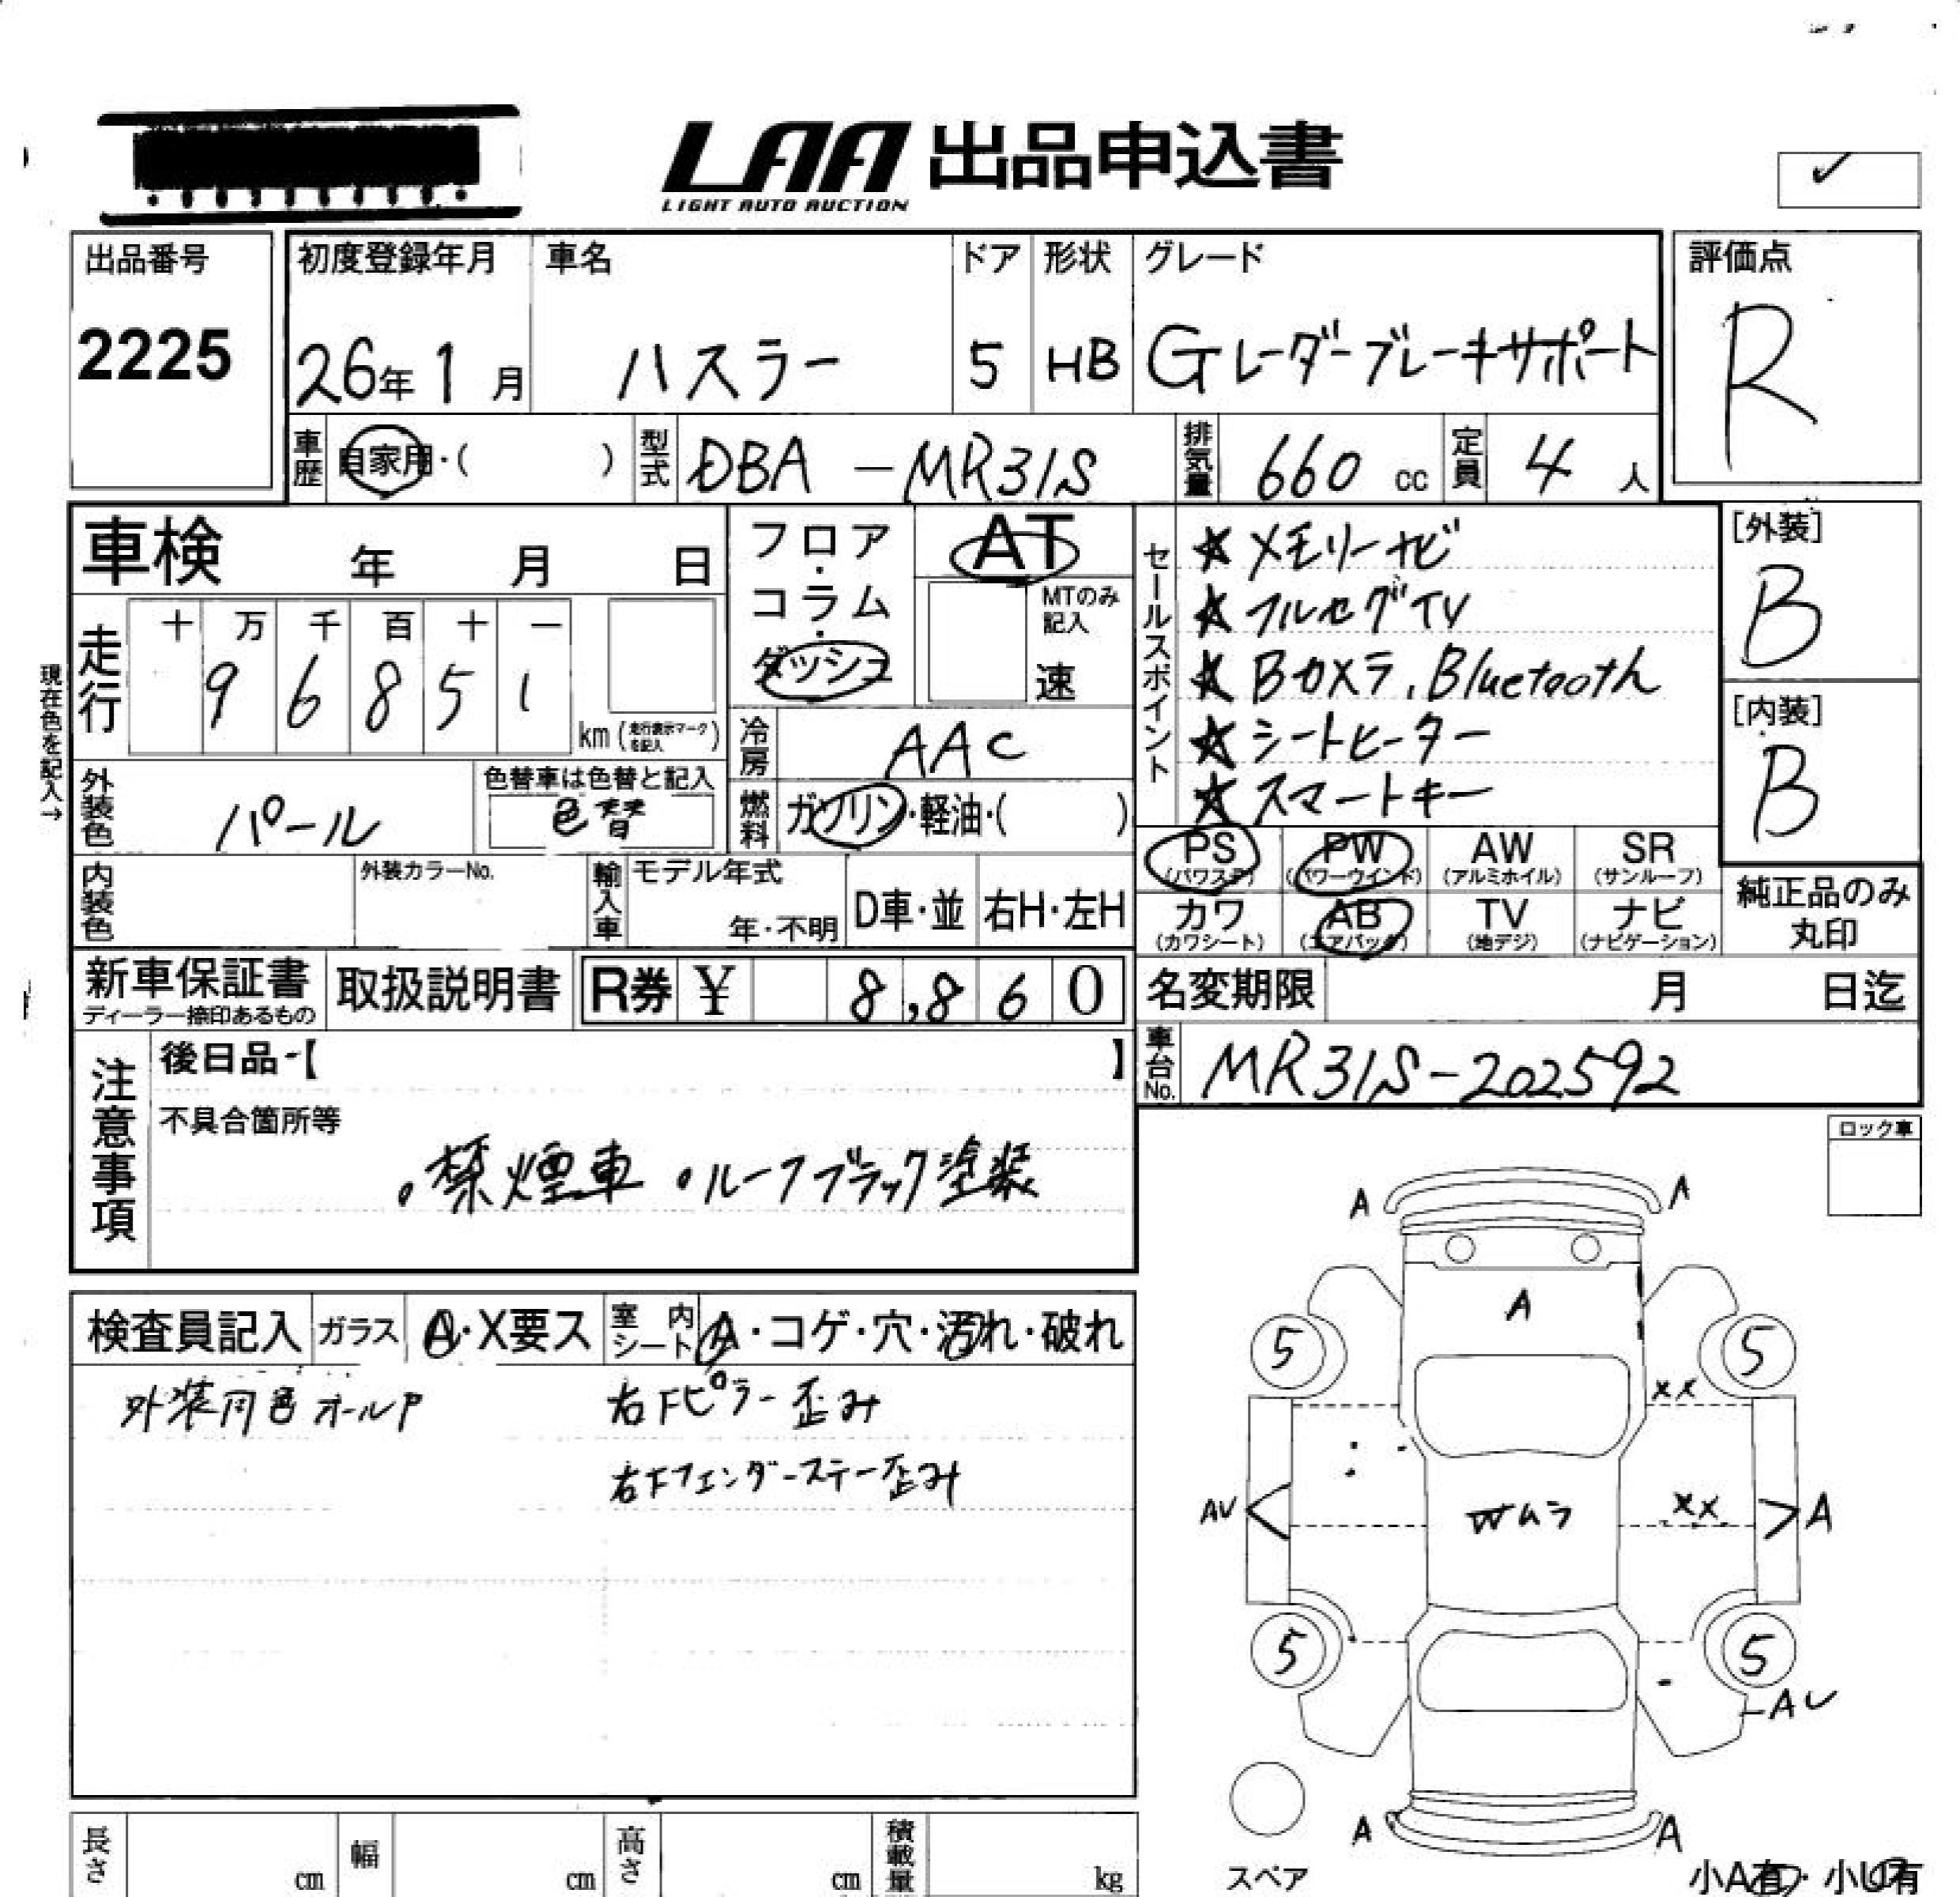 LAA 出品申込書
LIGHT AUTO AUCTION
✓
出品番号
2225
初度登録年月
26年 1月
車名
ハスラー
ドア
5
形状
HB
グレード
Gレーダーブレーキサポート
評価点
R
車歴
自家用・( )
型式
DBA-MR31S
排気量
660 cc
定員
4 人
車検 年 月 日
走行
十 万 千 百 十 一
9 6 8 5 1
km(走行表示マークを記入)
現在色を記入→
外装色
パール
色替車は色替と記入
色替
内装色
外装カラーNo.
フロア・コラム・ダッシュ
AT
MTのみ記入
速
冷房
AAC
燃料
ガソリン・軽油・( )
輸入車
モデル年式
年・不明
D車・並
右H・左H
セールスポイント
★メモリーナビ
★フルセグTV
★Bカメラ、Bluetooth
★シートヒーター
★スマートキー
[外装]
B
[内装]
B
PS (パワステ)
PW (パワーウインド)
AW (アルミホイル)
SR (サンルーフ)
カワ (カワシート)
AB (エアバック)
TV (地デジ)
ナビ (ナビゲーション)
純正品のみ丸印
新車保証書
ディーラー捺印あるもの
取扱説明書
R券 ¥ 8,860
名変期限 月 日迄
車台No.
MR31S-202592
注意事項
後日品-【 】
不具合箇所等
・禁煙車 ・ルーフブラック塗装
ロック車
検査員記入
ガラス
A・X要ス
室内シート
A・コゲ・穴・汚れ・破れ
外装同色オールP
右Fピラー歪み
右Fフェンダーステー歪み
A A
A
5 5
XX
AV
Wムラ
XX
A
5 5
AU
A A
スペア
小A有・小U有
長さ cm
幅 cm
高さ cm
積載量 kg